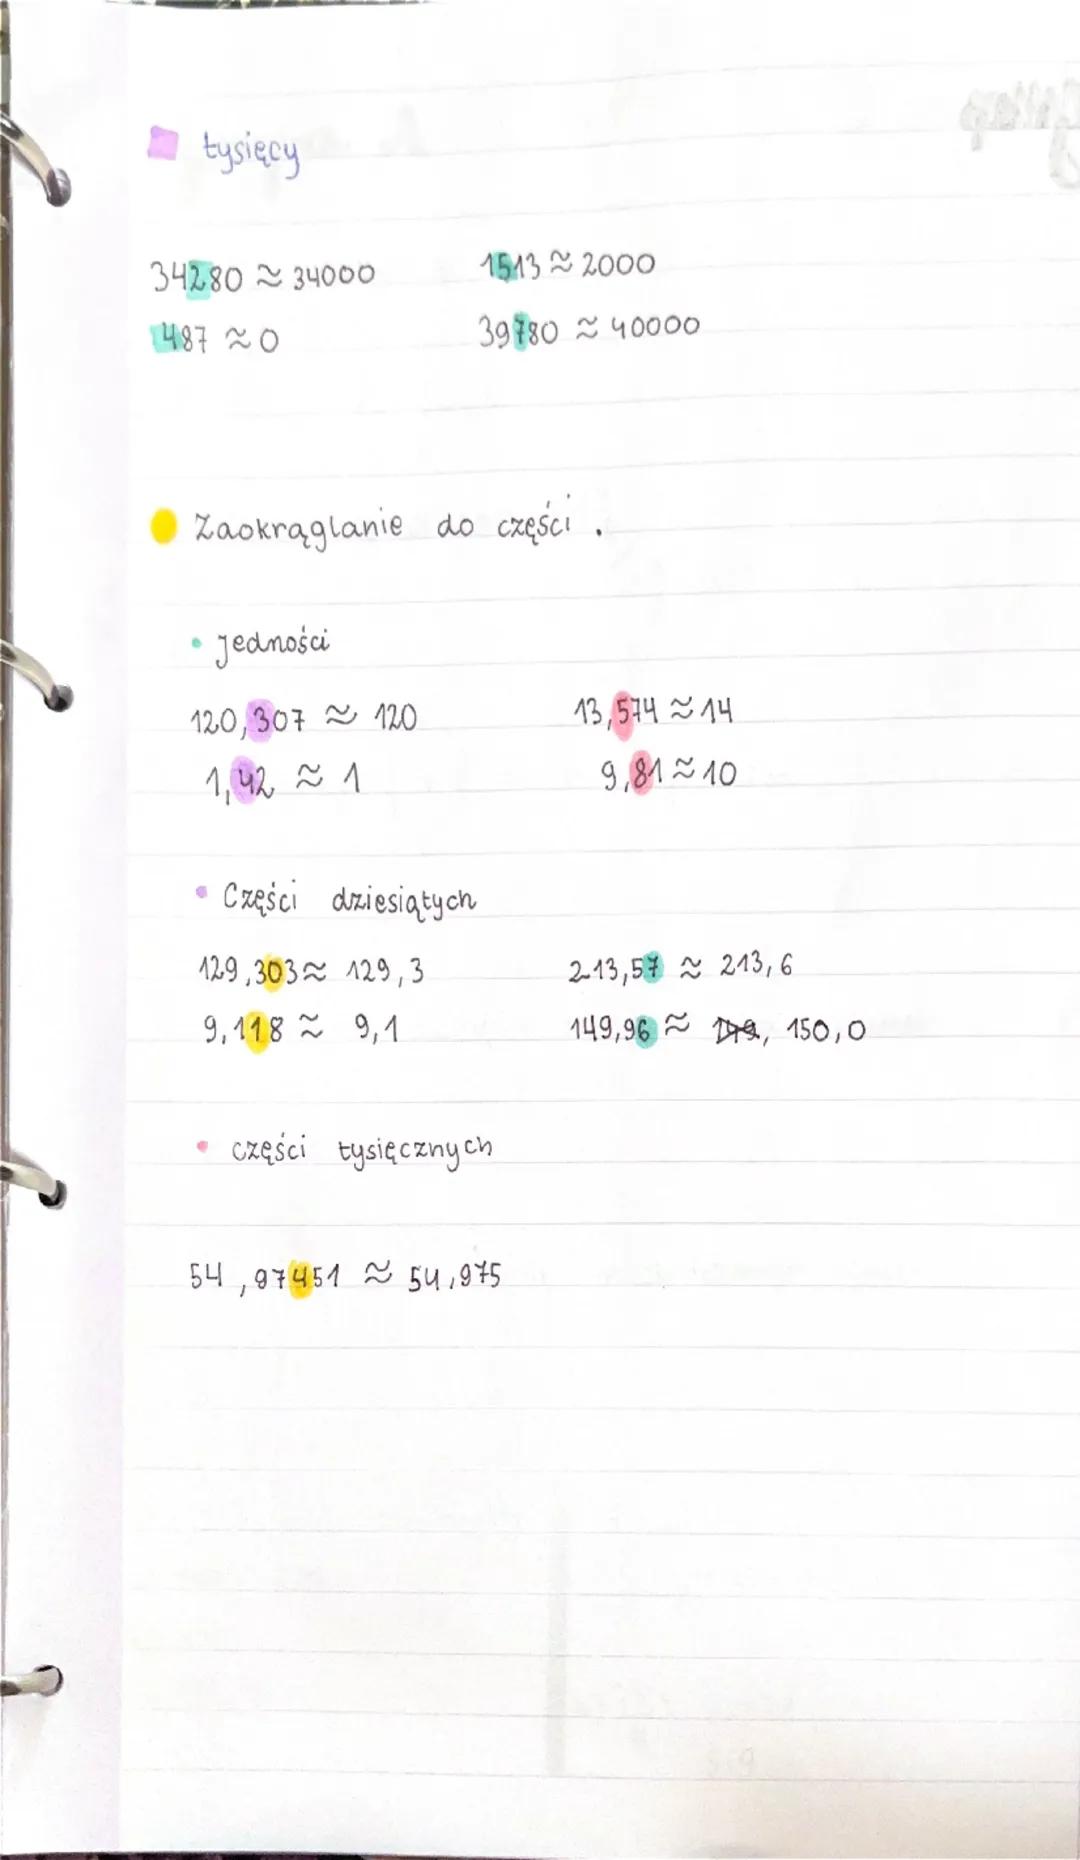 tysięcy
34280 ≈ 34000 1513 ≈ 2000
487 ≈ 0 39780 ≈ 40000
Zaokrąglanie do części.
jedności
120,307 ≈ 120 13,574 ≈ 14
1,42 ≈ 1 9,81 ≈ 10
Części dziesiątych
129,303 ≈ 129,3 213,57 ≈ 213,6
9,118 ≈ 9,1 149,96 ≈ 150,0
części tysięcznych
54,97451 ≈ 54,975